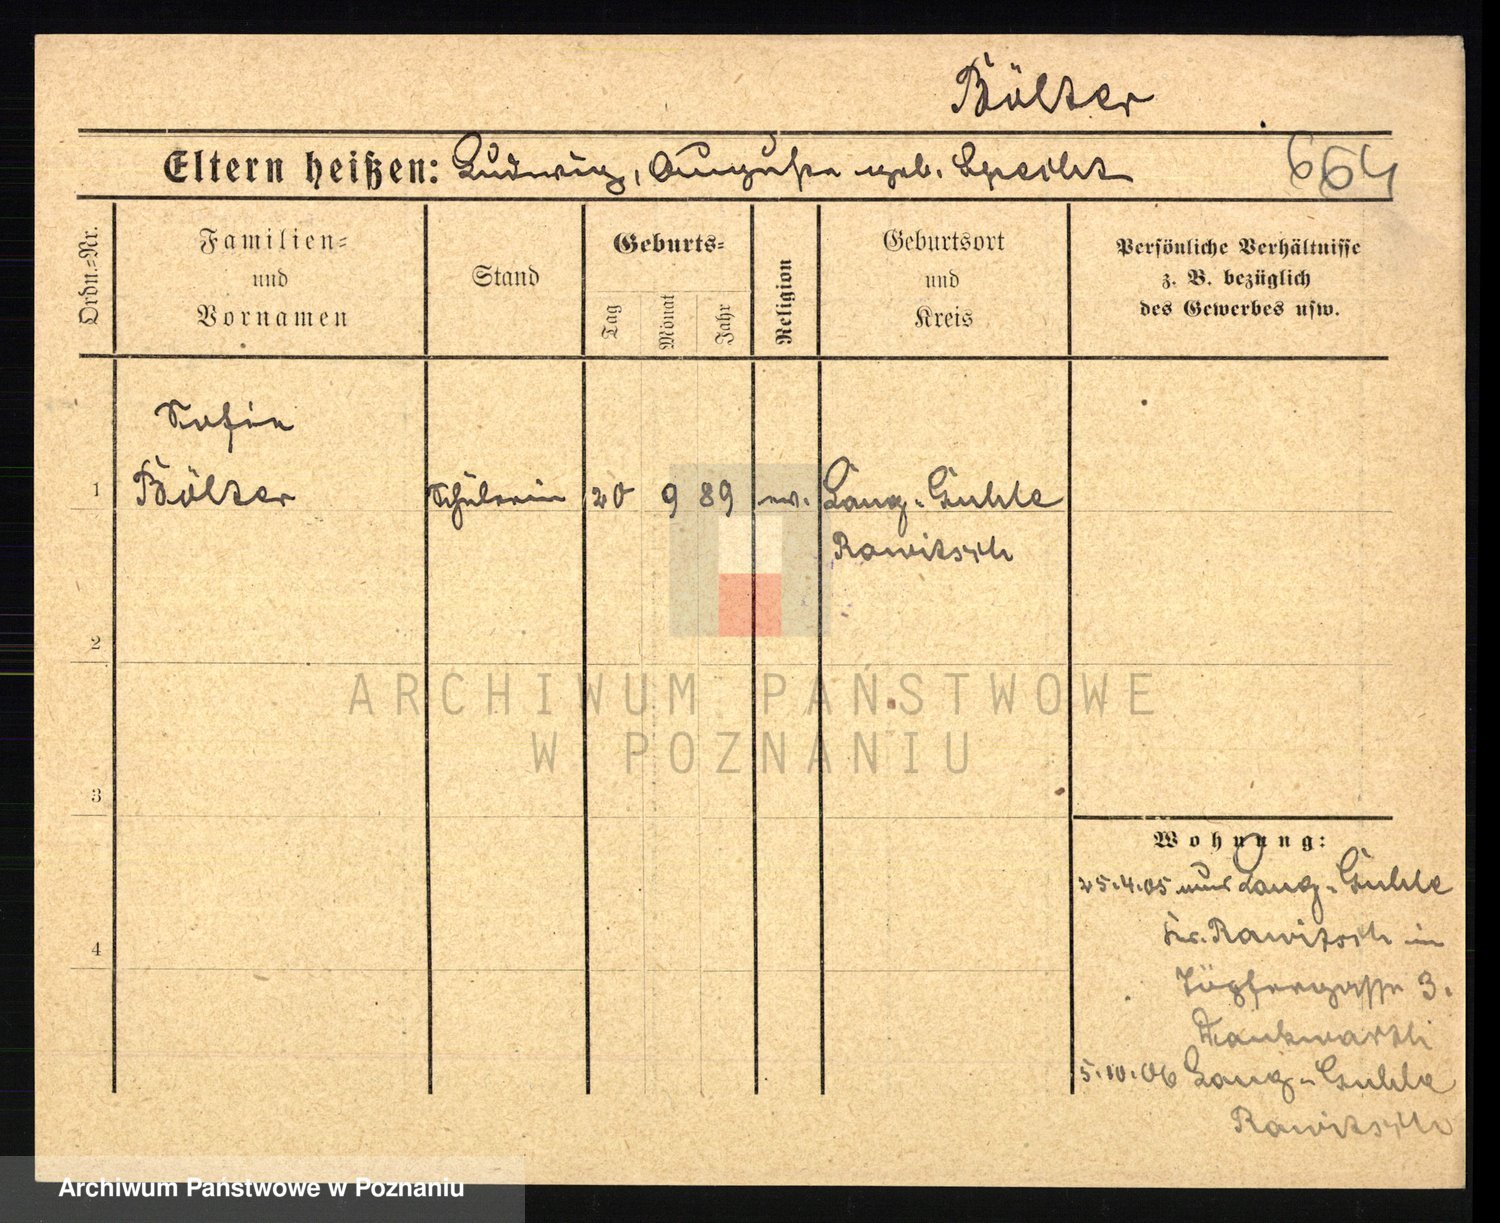 Bölter
Eltern heißen: Ludwig, Auguste geb. Specht
664
Ordn.=Nr.
Familien=
und
Vornamen
Stand
Geburts=
Tag
Monat
Jahr
Religion
Geburtsort
und
Kreis
Persönliche Verhältnisse
z. B. bezüglich
des Gewerbes usw.
Sofie
1 Bölter Schülerin 20 9 89 ev. Lang-Guhle
Rawitsch
2
ARCHIWUM PAŃSTWOWE
W POZNANIU
3
Wohnung:
25.4.05 Lang-Guhle
Kr. Rawitsch in
4
Töpfergasse 3.
5.10.06 Lang-Guhle
Rawitsch
Archiwum Państwowe w Poznaniu